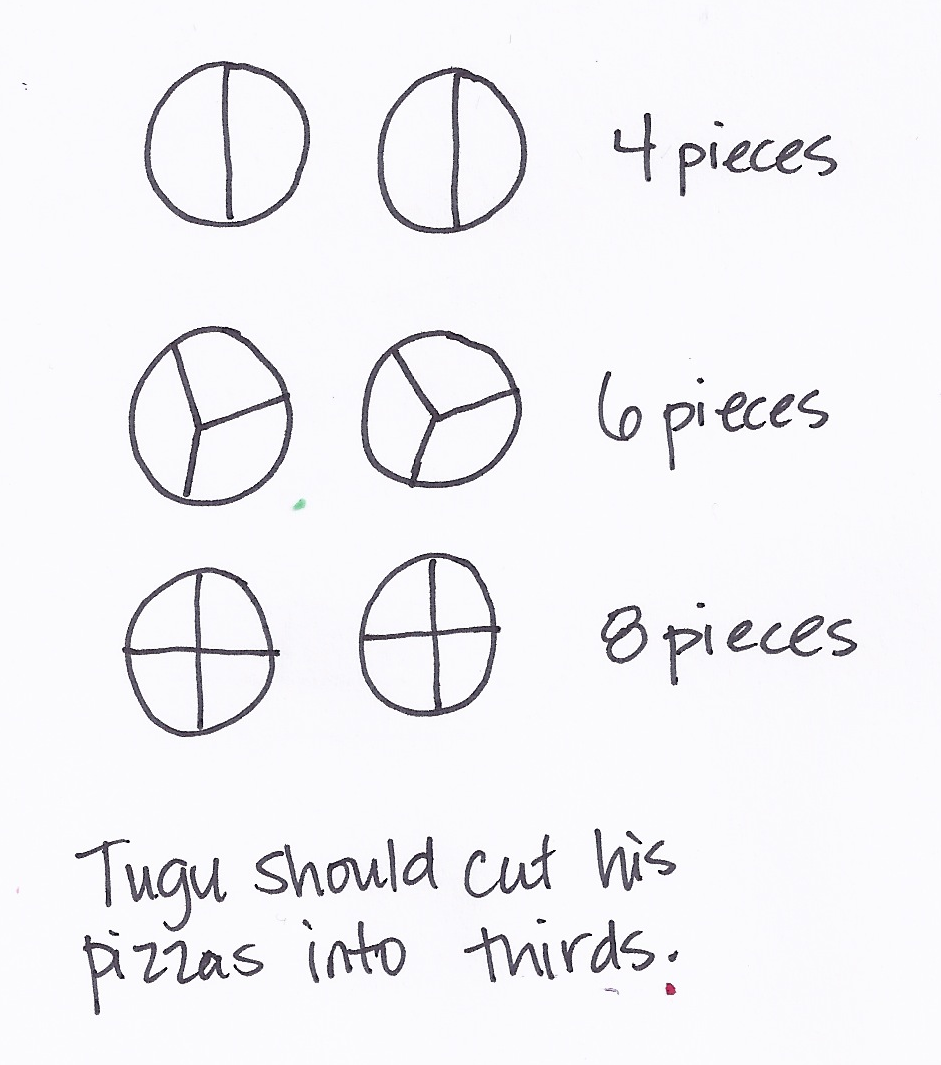 4 pieces
6 pieces
8 pieces
Tugu should cut his
pizzas into thirds.